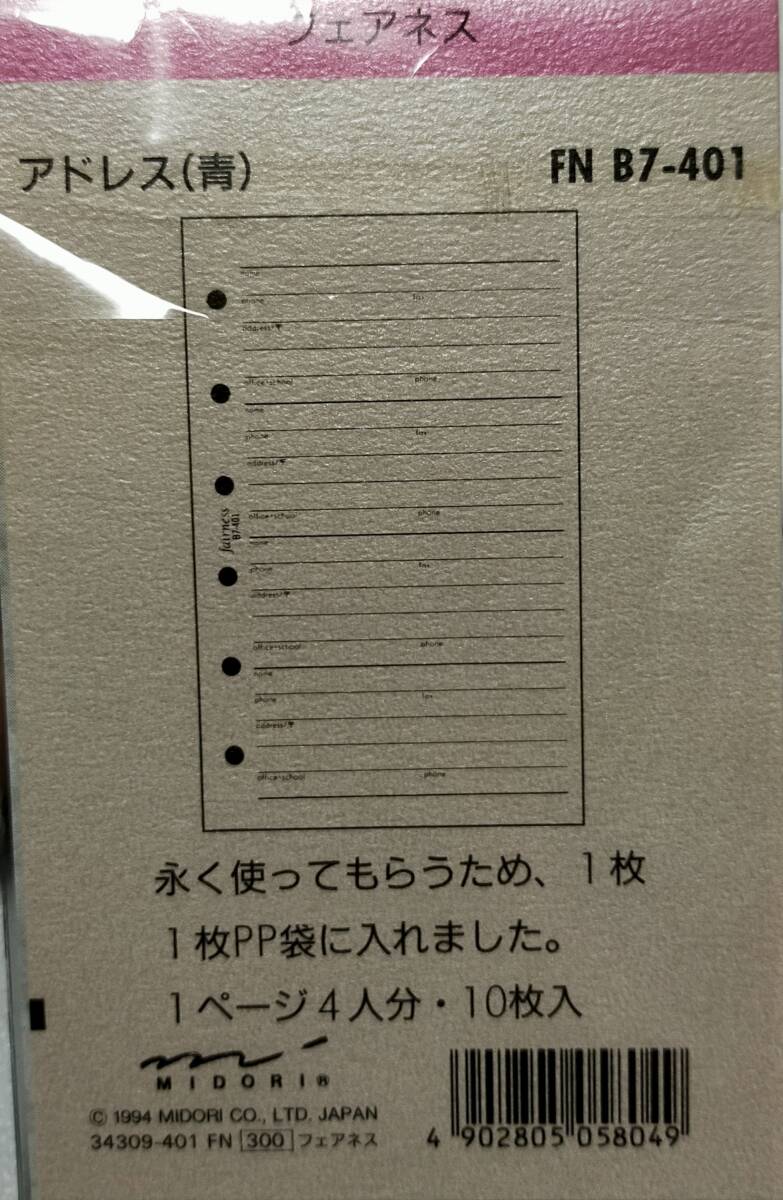 フェアネス
アドレス(青)
FN B7-401
name
phone fax
address/〒
office・school phone
name
phone fax
address/〒
office・school phone
fairness
B7-401
name
phone fax
address/〒
office・school phone
name
phone fax
address/〒
office・school phone
永く使ってもらうため、1枚
1枚PP袋に入れました。
1ページ4人分・10枚入
MIDORI®
© 1994 MIDORI CO., LTD. JAPAN
34309-401 FN 300 フェアネス
4 902805 058049